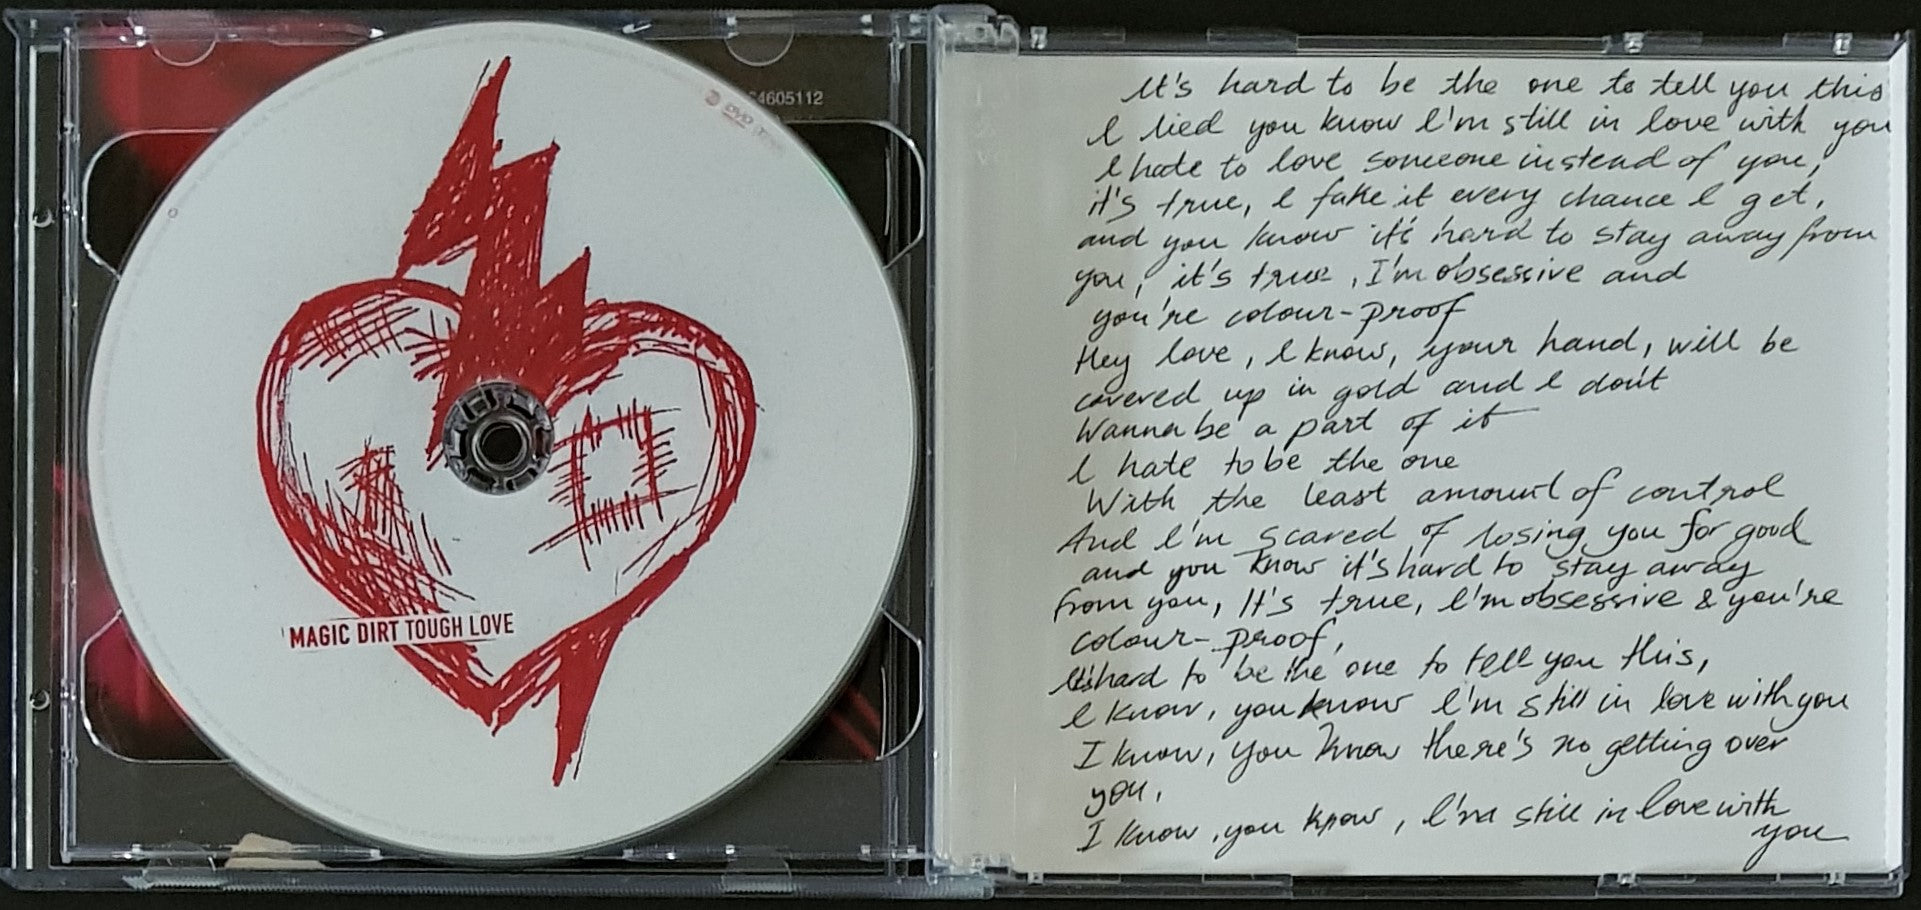 4605112
DVD
MAGIC DIRT TOUGH LOVE
It's hard to be the one to tell you this
I lied you know I'm still in love with you
I hate to love someone instead of you,
it's true, I fake it every chance I get,
and you know it's hard to stay away from
you, it's true, I'm obsessive and
you're colour-proof
Hey love, I know, your hand, will be
covered up in gold and I don't
Wanna be a part of it
I hate to be the one
With the least amount of control
And I'm scared of losing you for good
and you know it's hard to stay away
from you, It's true, I'm obsessive & you're
colour-proof,
It's hard to be the one to tell you this,
I know, you know I'm still in love with you
I know, you know there's no getting over
you,
I know, you know, I'm still in love with
you